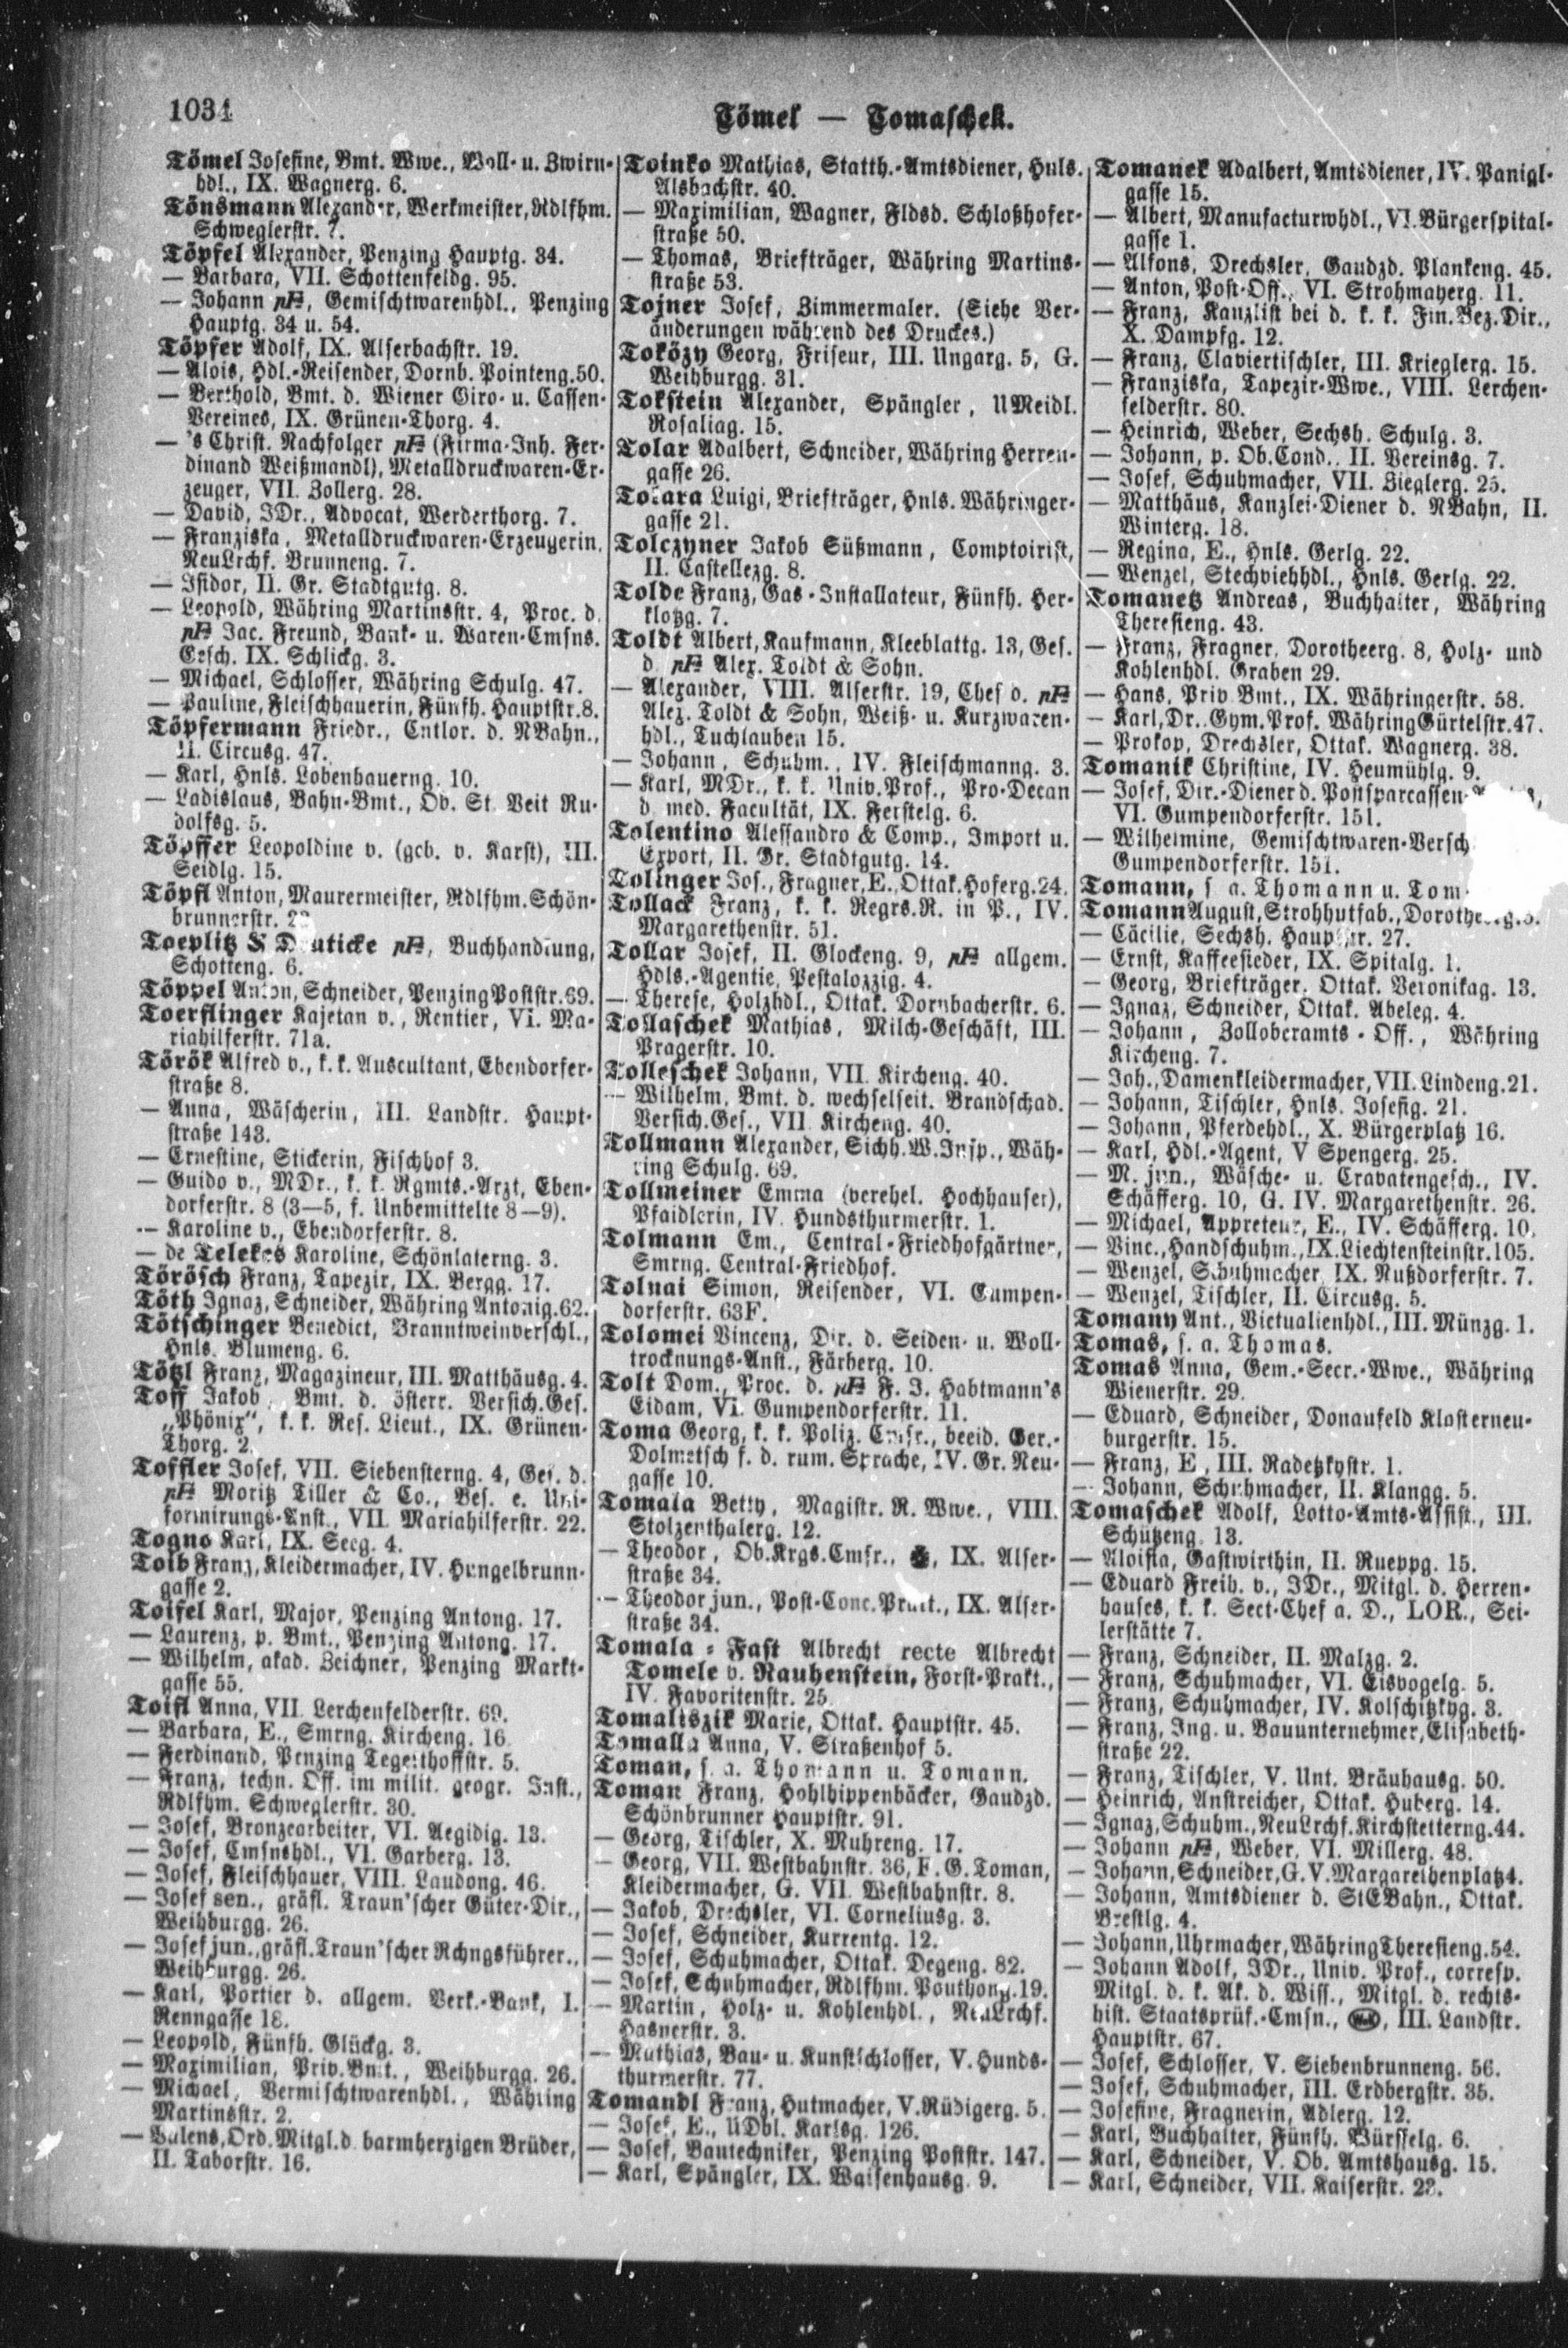 1034
Tömel — Tomaschek.
Tömel Josefine, Bmt. Wwe., Woll- u. Zwirn-
hdl., IX. Wagnerg. 6.
Tönsmann Alexander, Werkmeister, Rdlfhm.
Schweglerstr. 7.
Töpfel Alexander, Penzing Hauptg. 34.
— Barbara, VII. Schottenfeldg. 95.
— Johann pF, Gemischtwarenhdl., Penzing
Hauptg. 34 u. 54.
Töpfer Adolf, IX. Alserbachstr. 19.
— Alois, Hdl.-Reisender, Dornb. Pointeng. 50.
— Berthold, Bmt. d. Wiener Giro- u. Cassen-
Vereines, IX. Grünen-Thorg. 4.
— 's Christ. Nachfolger pF (Firma-Inh. Fer-
dinand Weißmandl), Metalldruckwaren-Er-
zeuger, VII. Zollerg. 28.
— David, JDr., Advocat, Werderthorg. 7.
— Franziska, Metalldruckwaren-Erzeugerin,
NeuLrchf. Brunneng. 7.
— Isidor, II. Gr. Stadtgutg. 8.
— Leopold, Währing Martinsstr. 4, Proc. d.
pF Jac. Freund, Bank- u. Waren-Cmsns.
Gesch. IX. Schlickg. 3.
— Michael, Schlosser, Währing Schulg. 47.
— Pauline, Fleischhauerin, Fünfh. Hauptstr. 8.
Töpfermann Friedr., Cntlor. d. NBahn.,
II. Circusg. 47.
— Karl, Hnls. Lobenhauerng. 10.
— Ladislaus, Bahn-Bmt., Ob. St. Veit Ru-
dolfsg. 5.
Töpffer Leopoldine v. (geb. v. Karst), III.
Seidlg. 15.
Töpfl Anton, Maurermeister, Rdlfhm. Schön-
brunnerstr.
Toeplitz & Deuticke pF, Buchhandlung,
Schotteng. 6.
Töppel Anton, Schneider, Penzing Poststr. 69.
Toerflinger Kajetan v., Rentier, VI. Ma-
riahilferstr. 71a.
Török Alfred v., k. k. Auscultant, Ebendorfer-
straße 8.
— Anna, Wäscherin, III. Landstr. Haupt-
straße 143.
— Ernestine, Stickerin, Fischhof 3.
— Guido v., MDr., k. k. Rgmts.-Arzt, Eben-
dorferstr. 8 (3—5, f. Unbemittelte 8—9).
— Karoline v., Ebendorferstr. 8.
— de Telekes Karoline, Schönlaterng. 3.
Törösch Franz, Tapezir, IX. Bergg. 17.
Tóth Ignaz, Schneider, Währing Antonig. 62.
Tötschinger Benedict, Branntweinverschl.,
Hnls. Blumeng. 6.
Tötzl Franz, Magazineur, III. Matthäusg. 4.
Toff Jakob, Bmt. d. österr. Versich.Ges.
„Phönix“, k. k. Res. Lieut., IX. Grünen-
Thorg. 2.
Toffler Josef, VII. Siebensterng. 4, Ges. d.
pF Moritz Tiller & Co., Bes. e. Uni-
formirungs-Anst., VII. Mariahilferstr. 22.
Togno Karl, IX. Seeg. 4.
Toib Franz, Kleidermacher, IV. Hungelbrunn-
gasse 2.
Toifel Karl, Major, Penzing Antong. 17.
— Laurenz, p. Bmt., Penzing Antong. 17.
— Wilhelm, akad. Zeichner, Penzing Markt-
gasse 55.
Toifl Anna, VII. Lerchenfelderstr. 69.
— Barbara, E., Smrng. Kircheng. 16.
— Ferdinand, Penzing Tegetthoffstr. 5.
— Franz, techn. Off. im milit. geogr. Inst.,
Rdlfhm. Schweglerstr. 30.
— Josef, Bronzearbeiter, VI. Aegidig. 13.
— Josef, Cmsnshdl., VI. Garberg. 13.
— Josef, Fleischhauer, VIII. Laudong. 46.
— Josef sen., gräfl. Traun'scher Güter-Dir.,
Weihburgg. 26.
— Josef jun., gräfl. Traun'scher Rchngsführer.,
Weihburgg. 26.
— Karl, Portier d. allgem. Verk.-Bank, I.
Renngasse 18.
— Leopold, Fünfh. Glückg. 3.
— Maximilian, Priv.Bmt., Weihburgg. 26.
— Michael, Vermischtwarenhdl., Währing
Martinsstr. 2.
— Valens, Ord.Mitgl.d. barmherzigen Brüder,
II. Taborstr. 16.
Toinko Mathias, Statth.-Amtsdiener, Hnls.
Alsbachstr. 40.
— Maximilian, Wagner, Fldsd. Schloßhofer-
straße 50.
— Thomas, Briefträger, Währing Martins-
straße 53.
Tojner Josef, Zimmermaler. (Siehe Ver-
änderungen während des Druckes.)
Toközy Georg, Friseur, III. Ungarg. 5, G.
Weihburgg. 31.
Tokstein Alexander, Spängler, UMeidl.
Rosaliag. 15.
Tolar Adalbert, Schneider, Währing Herren-
gasse 26.
Tolara Luigi, Briefträger, Hnls. Währinger-
gasse 21.
Tolczyner Jakob Süßmann, Comptoirist,
II. Castellezg. 8.
Tolde Franz, Gas-Installateur, Fünfh. Her-
klotzg. 7.
Toldt Albert, Kaufmann, Kleeblattg. 13, Ges.
d. pF Alex. Toldt & Sohn.
— Alexander, VIII. Alserstr. 19, Chef d. pF
Alex. Toldt & Sohn, Weiß- u. Kurzwaren-
hdl., Tuchlauben 15.
— Johann, Schuhm., IV. Fleischmanng. 3.
— Karl, MDr., k. k. Univ.Prof., Pro-Decan
d. med. Facultät, IX. Ferstelg. 6.
Tolentino Alessandro & Comp., Import u.
Export, II. Gr. Stadtgutg. 14.
Tolinger Jos., Fragner, E., Ottak. Hoferg. 24.
Tollack Franz, k. k. Regrs.R. in P., IV.
Margarethenstr. 51.
Tollar Josef, II. Glockeng. 9, pF allgem.
Hdls.-Agentie, Pestalozzig. 4.
— Therese, Holzhdl., Ottak. Dornbacherstr. 6.
Tollaschek Mathias, Milch-Geschäft, III.
Pragerstr. 10.
Tolleschek Johann, VII. Kircheng. 40.
— Wilhelm, Bmt. d. wechselseit. Brandschad.
Versich.Ges., VII. Kircheng. 40.
Tollmann Alexander, Sichh.W.Insp., Wäh-
ring Schulg. 69.
Tollmeiner Emma (verehel. Hochhauser),
Pfaidlerin, IV. Hundsthurmerstr. 1.
Tolmann Em., Central-Friedhofgärtner,
Smrng. Central-Friedhof.
Tolnai Simon, Reisender, VI. Gumpen-
dorferstr. 63F.
Tolomei Vincenz, Dir. d. Seiden- u. Woll-
trocknungs-Anst., Färberg. 10.
Tolt Dom., Proc. d. pF F. J. Habtmann's
Eidam, VI. Gumpendorferstr. 11.
Toma Georg, k. k. Poliz. Cmsr., beeid. Ger.-
Dolmetsch f. d. rum. Sprache, IV. Gr. Neu-
gasse 10.
Tomala Betty, Magistr. R. Wwe., VIII.
Stolzenthalerg. 12.
— Theodor, Ob.Krgs.Cmsr., IX. Alser-
straße 34.
— Theodor jun., Post-Conc.Pract., IX. Alser-
straße 34.
Tomala-Fast Albrecht recte Albrecht
Tomele v. Rauhenstein, Forst-Prakt.,
IV. Favoritenstr. 25.
Tomaliszik Marie, Ottak. Hauptstr. 45.
Tomalla Anna, V. Straßenhof 5.
Toman, s. a. Thomann u. Tomann.
Toman Franz, Hohlhippenbäcker, Gaudzd.
Schönbrunner Hauptstr. 91.
— Georg, Tischler, X. Muhreng. 17.
— Georg, VII. Westbahnstr. 36, F. G. Toman,
Kleidermacher, G. VII. Westbahnstr. 8.
— Jakob, Drechsler, VI. Corneliusg. 3.
— Josef, Schneider, Kurrentg. 12.
— Josef, Schuhmacher, Ottak. Degeng. 82.
— Josef, Schuhmacher, Rdlfhm. Pouthong. 19.
— Martin, Holz- u. Kohlenhdl., NeuLrchf.
Hasnerstr. 3.
— Mathias, Bau- u. Kunstschlosser, V. Hunds-
thurmerstr. 77.
Tomandl Franz, Hutmacher, V. Rüdigerg. 5.
— Josef, E., UDbl. Karlsg. 126.
— Josef, Bautechniker, Penzing Poststr. 147.
— Karl, Spängler, IX. Waisenhausg. 9.
Tomanek Adalbert, Amtsdiener, IV. Panigl-
gasse 15.
— Albert, Manufacturwhdl., VI. Bürgerspital-
gasse 1.
— Alfons, Drechsler, Gaudzd. Plankeng. 45.
— Anton, Post-Off., VI. Strohmayerg. 11.
— Franz, Kanzlist bei d. k. k. Fin.Bez.Dir.,
X. Dampfg. 12.
— Franz, Claviertischler, III. Krieglerg. 15.
— Franziska, Tapezir-Wwe., VIII. Lerchen-
felderstr. 80.
— Heinrich, Weber, Sechsh. Schulg. 3.
— Johann, p. Ob.Cond., II. Vereinsg. 7.
— Josef, Schuhmacher, VII. Zieglerg. 25.
— Matthäus, Kanzlei-Diener d. NBahn, II.
Winterg. 18.
— Regina, E., Hnls. Gerlg. 22.
— Wenzel, Stechviehhdl., Hnls. Gerlg. 22.
Tomanetz Andreas, Buchhalter, Währing
Theresieng. 43.
— Franz, Fragner, Dorotheerg. 8, Holz- und
Kohlenhdl. Graben 29.
— Hans, Priv Bmt., IX. Währingerstr. 58.
— Karl, Dr., Gym.Prof. Währing Gürtelstr. 47.
— Prokop, Drechsler, Ottak. Wagnerg. 38.
Tomanik Christine, IV. Heumühlg. 9.
— Josef, Dir.-Diener d. Postsparcassen-
VI. Gumpendorferstr. 151.
— Wilhelmine, Gemischtwaren-Versch
Gumpendorferstr. 151.
Tomann, s. a. Thomann u. Tom
Tomann August, Strohhutfab.,
— Cäcilie, Sechsh. Hauptstr. 27.
— Ernst, Kaffeesieder, IX. Spitalg. 1.
— Georg, Briefträger, Ottak. Veronikag. 13.
— Ignaz, Schneider, Ottak. Abeleg. 4.
— Johann, Zolloberamts-Off., Währing
Kircheng. 7.
— Joh., Damenkleidermacher, VII. Lindeng. 21.
— Johann, Tischler, Hnls. Josefig. 21.
— Johann, Pferdehdl., X. Bürgerplatz 16.
— Karl, Hdl.-Agent, V. Spengerg. 25.
— M. jun., Wäsche- u. Cravatengesch., IV.
Schäfferg. 10, G. IV. Margarethenstr. 26.
— Michael, Appreteur, E., IV. Schäfferg. 10.
— Vinc., Handschuhm., IX. Liechtensteinstr. 105.
— Wenzel, Schuhmacher, IX. Nußdorferstr. 7.
— Wenzel, Tischler, II. Circusg. 5.
Tomany Ant., Victualienhdl., III. Münzg. 1.
Tomas, s. a. Thomas.
Tomas Anna, Gem.-Secr.-Wwe., Währing
Wienerstr. 29.
— Eduard, Schneider, Donaufeld Klosterneu-
burgerstr. 15.
— Franz, E., III. Radetzkystr. 1.
— Johann, Schuhmacher, II. Klangg. 5.
Tomaschek Adolf, Lotto-Amts-Assist., III.
Schützeng. 13.
— Aloisia, Gastwirthin, II. Rueppg. 15.
— Eduard Freih. v., JDr., Mitgl. d. Herren-
hauses, k. k. Sect-Chef a. D., LOR., Sei-
lerstätte 7.
— Franz, Schneider, II. Malzg. 2.
— Franz, Schuhmacher, VI. Eisvogelg. 5.
— Franz, Schuhmacher, IV. Kolschitzkyg. 3.
— Franz, Ing. u. Bauunternehmer, Elisabeth-
straße 22.
— Franz, Tischler, V. Unt. Bräuhausg. 50.
— Heinrich, Anstreicher, Ottak. Huberg. 14.
— Ignaz, Schuhm., NeuLrchf. Kirchstetterng. 44.
— Johann pF, Weber, VI. Millerg. 48.
— Johann, Schneider, G. V. Margarethenplatz 4.
— Johann, Amtsdiener d. StEBahn., Ottak.
Brestlg. 4.
— Johann, Uhrmacher, Währing Theresieng. 54.
— Johann Adolf, JDr., Univ. Prof., corresp.
Mitgl. d. k. Ak. d. Wiss., Mitgl. d. rechts-
hist. Staatsprüf.-Cmsn., III. Landstr.
Hauptstr. 67.
— Josef, Schlosser, V. Siebenbrunneng. 56.
— Josef, Schuhmacher, III. Erdbergstr. 35.
— Josefine, Fragnerin, Adlerg. 12.
— Karl, Buchhalter, Fünfh. Würffelg. 6.
— Karl, Schneider, V. Ob. Amtshausg. 15.
— Karl, Schneider, VII. Kaiserstr.